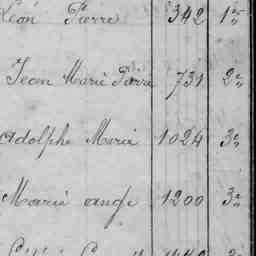 Léon Pierre 342 1er
Jean Marie Pierre 731 2e
Adolphe Marie 1024 3e
Marie ange 1200 3e